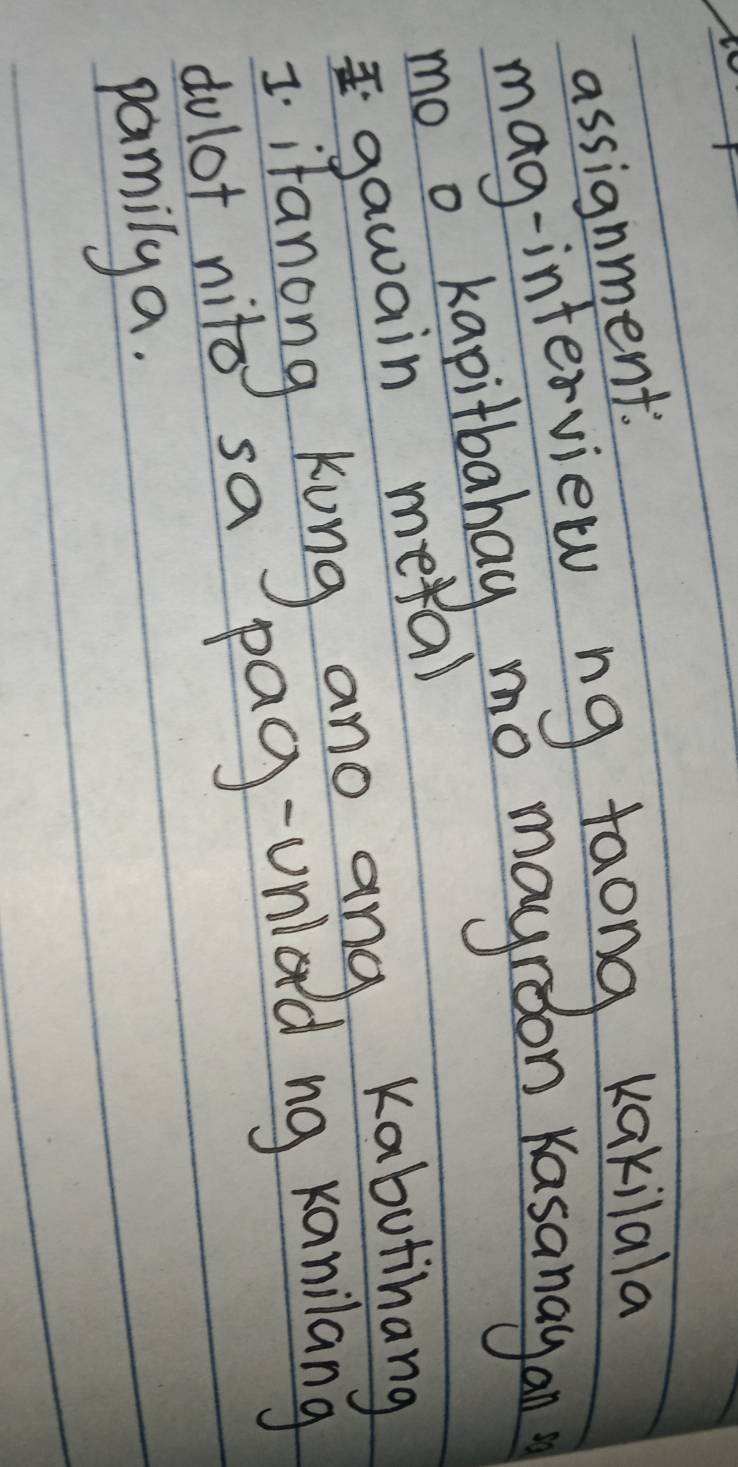 assignment:
mag-interview ng taong kakilala
mo o kapitbahay mo mayroon kasanayan sa
gawain metal
1. itanong kung ano ang kabutihang
dulot nito sa pag-unlad ng kanilang
pamilya.